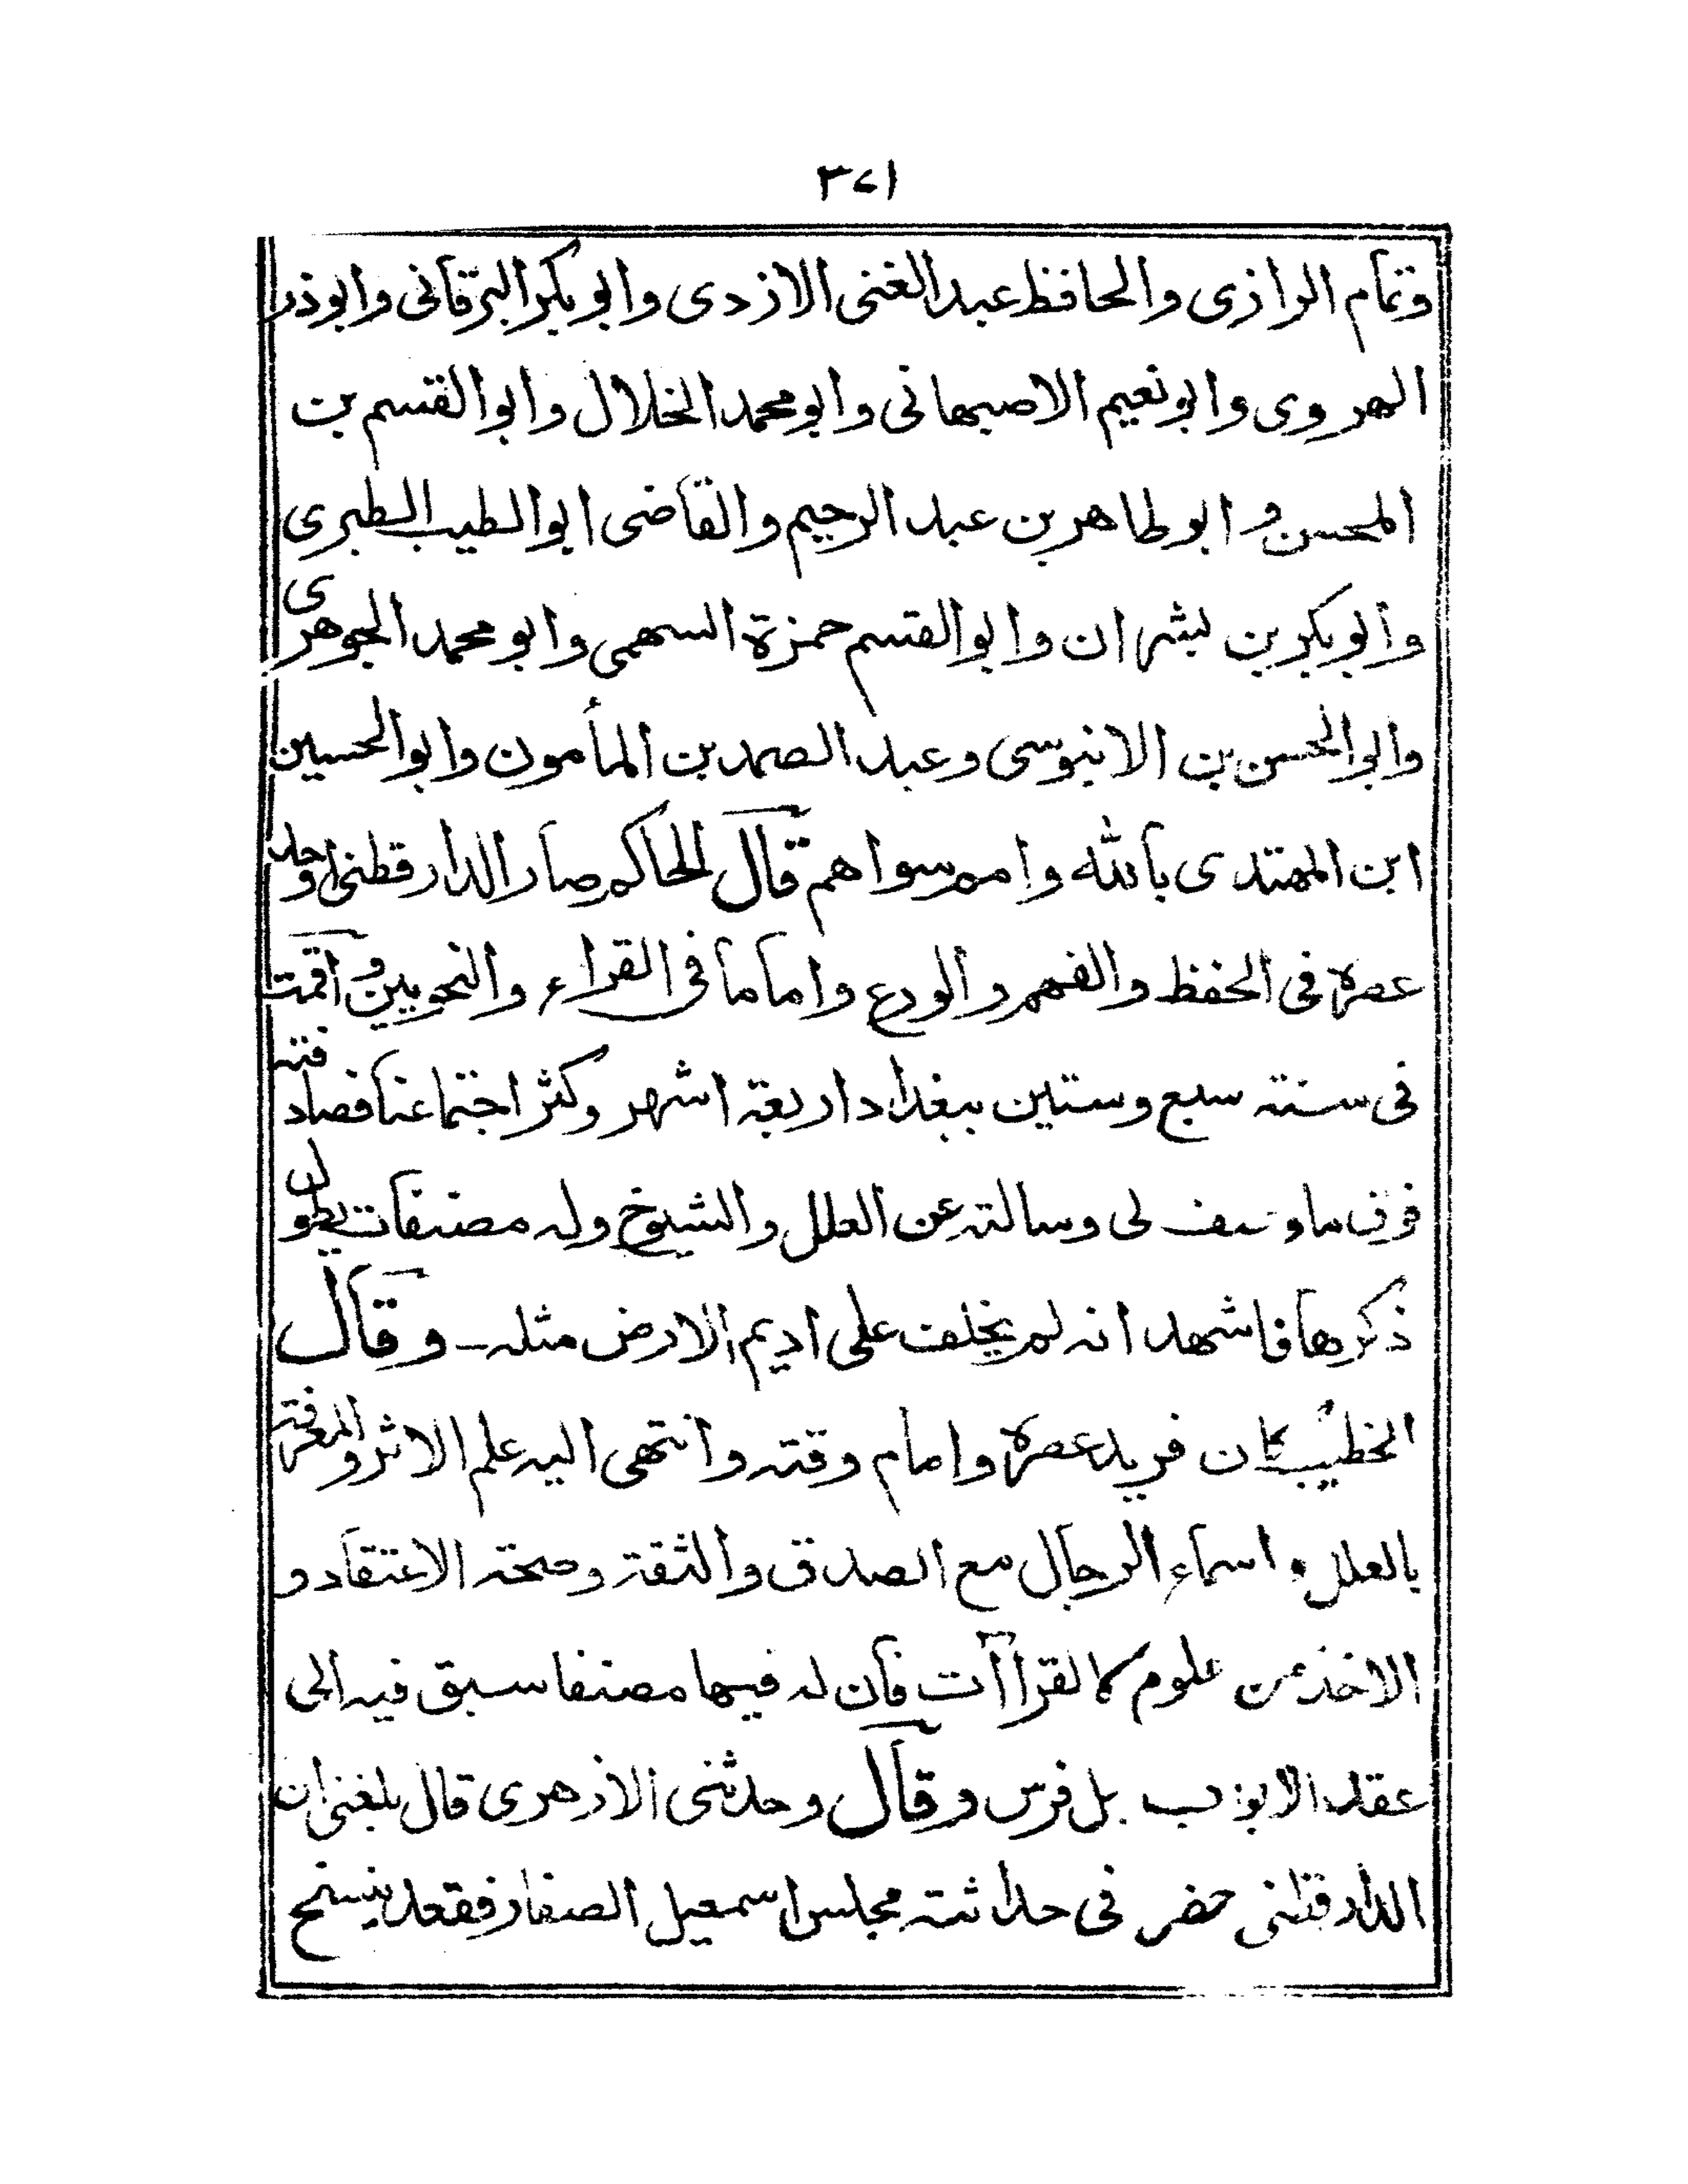 ٣٧١
وتمام الرازى والحافظ عبد الغنى الازدى وابو بكر البرقانى وابوذر
الهروى وابو نعيم الاصبهانى وابو محمد الخلال وابو القسم بن
المحسن و ابو طاهر بن عبد الرحيم والقاضى ابو الطيب الطبرى
وابو بكر بن بشران وابو القسم حمزة السهمى وابو محمد الجوهرى
وابو الحسن بن الابنوسى وعبد الصمد بن المأمون وابو الحسين
ابن المهتدى بالله وامم سواهم قال الحاكم صار الدارقطنى اوحد
عصره فى الحفظ والفهم والورع واماما فى القراء والنحويين و اقمت
فى سنة سبع وستين ببغداد اربعة اشهر وكثر اجتماعنا فصادفته
فوق ما وصف لى وسالته عن العلل والشيوخ وله مصنفات يطول
ذكرها فاشهد انه لم يخلف على اديم الارض مثله – وقال
الخطيب كان فريد عصره وامام وقته وانتهى اليه علم الاثر والمعرفة
بالعلل و اسماء الرجال مع الصدق والثقة وصحة الاعتقاد و
الاخذ من علوم كالقراآت فان له فيها مصنفا سبق فيه الى
عقد الابواب بل فرس وقال وحدثنى الازهرى قال بلغنى ان
الدارقطنى حضر فى حداثته مجلس اسمعيل الصفار فقعد ينسخ